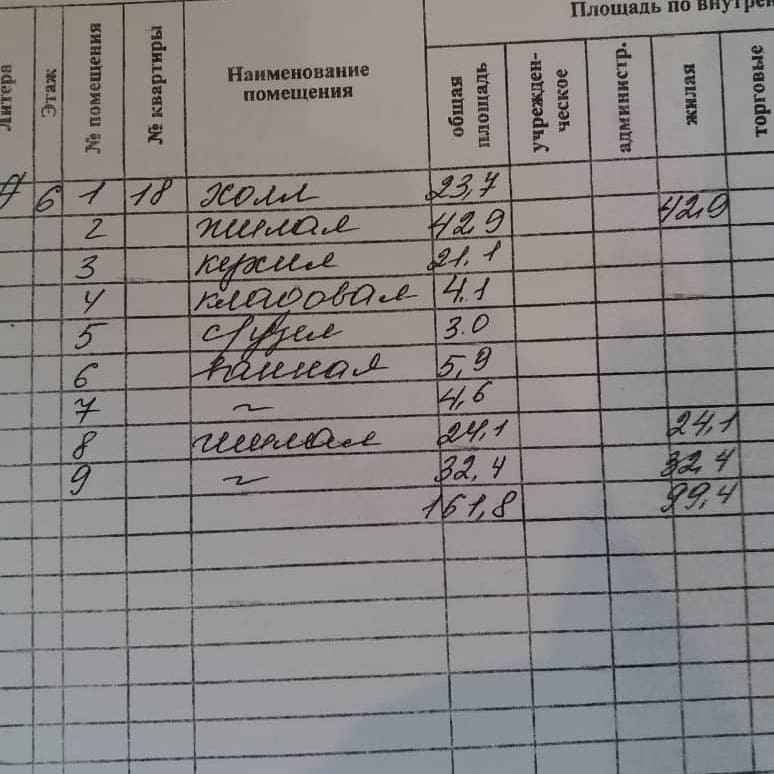 Площадь по внутрен
Литера Этаж № помещения № квартиры Наименование помещения общая площадь учрежден-ческое администр. жилая торговые
А 6 1 18 холл 23,7
2 жилая 42,9 42,9
3 кухня 21.1
4 кладовая 4.1
5 с/узел 3.0
6 ванная 5,9
7 ~ 4,6
8 жилая 24,1 24,1
9 ~ 32,4 32,4
161,8 99,4